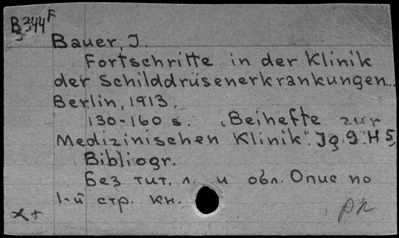 B 344 F
Bauer, J.
Fortschritte in der Klinik
der Schilddrüsenerkrankungen..
Berlin, 1913.
130-160 s. „Beihefte zur
Medizinischen Klinik". Jg. 9. H 5,
Bibliogr.
Без тит. л. и обл. Опис по
1-й стр. кн.
x+